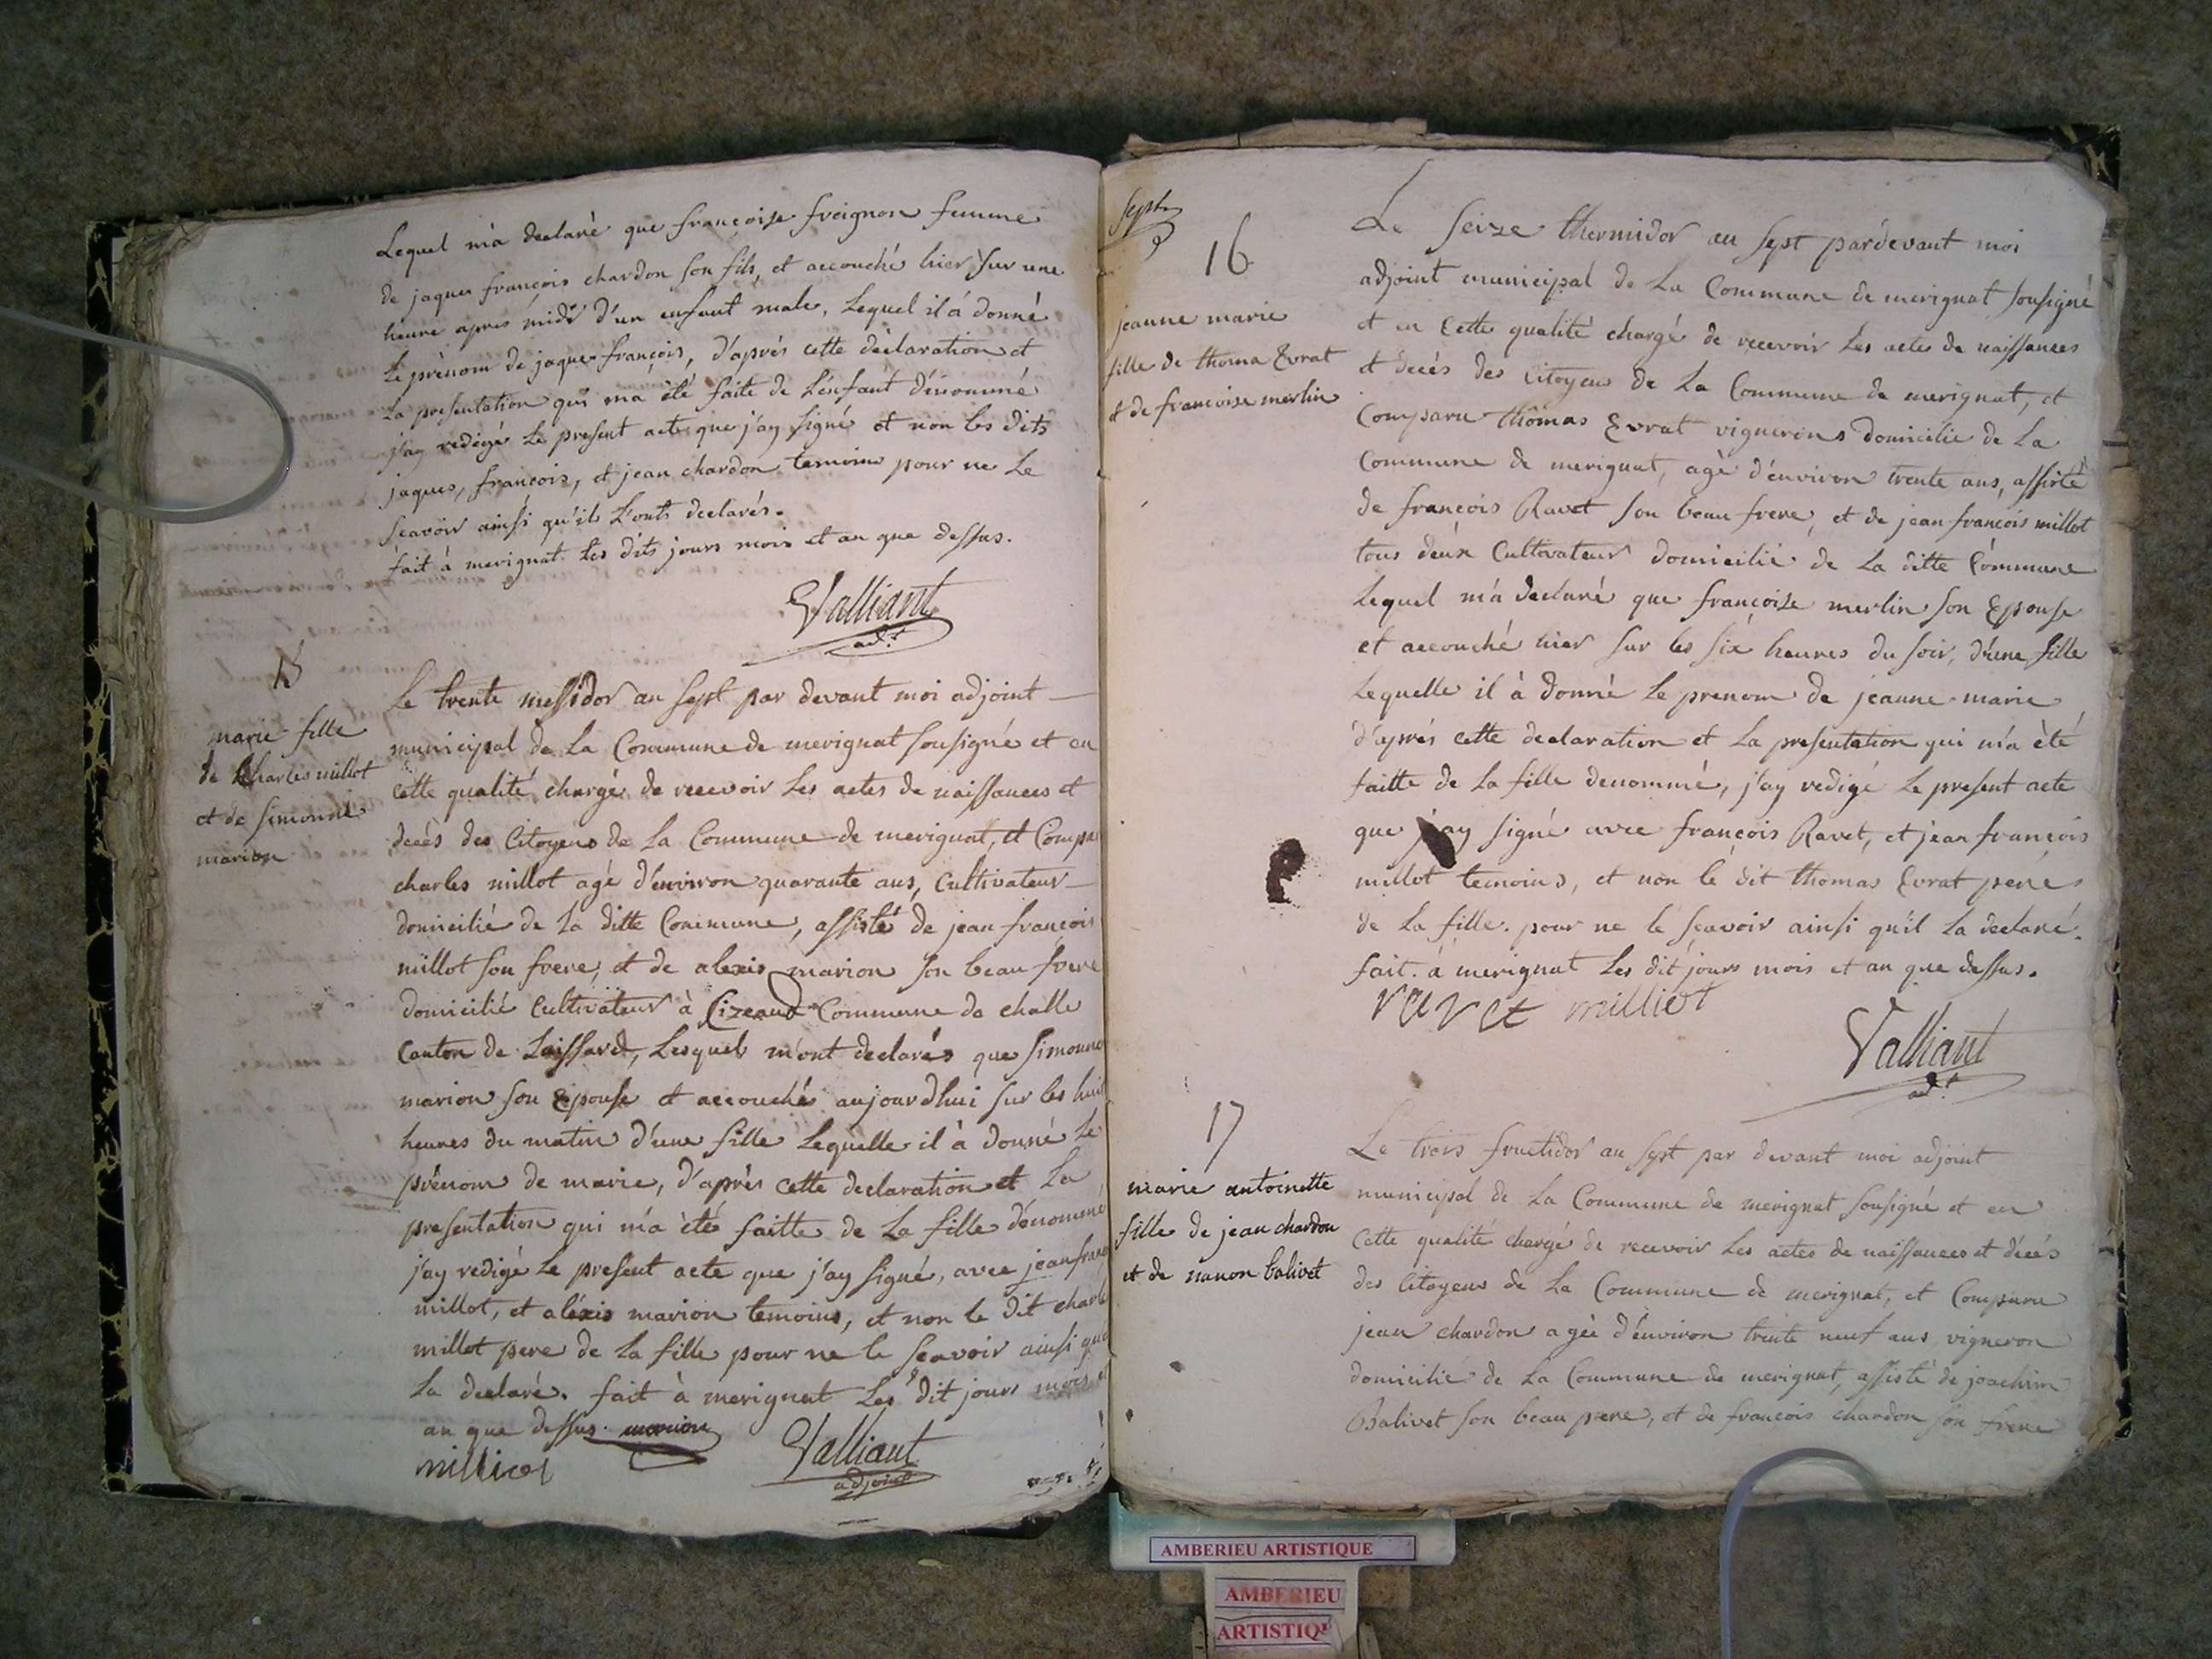 Lequel m'a declaré que françoise freignon femme
de jaques françois chardon son fils, et accouché hier sur une
heure apres midi d'un enfant male, Lequel il à donné
Le prènom de jaques françois, d'aprés cette dèclaration et
La presentation qui ma été faite de L'enfant dénommé
j'ay redigé Le present acte que j'ay signé et non les dits
jaques, françois, et jean chardon temoins pour ne Le
scavoir ainsi qu'ils L'onts declarés.
fait à merignat les dits jours mois et an que dessus.
Valliant
adt.
15
marie fille
de Charles millot
et de simonne
marion
Le trente messidor an sept par devant moi adjoint
municipal de La Commune de merignat sousigné et en
cette qualité chargé de recevoir Les actes de naissances et
decés des Citoyens de La Commune de merignat, et Compa
charles millot agé d'environ quarante ans, Cultivateur
domicilié de la ditte Commune, assisté de jean françois
millot son frere, et de alexis marion son beau frere
domicilié Cultivateur à Cizeaud Commune de challe
Canton de Leissard, Lesquels m'ont declarés que simonne
marion son Epouse et accouché aujourdhui sur les huit
heures du matin d'une fille Lequelle il à donné Le
prénom de marie, d'aprés cette declaration et La
presentation qui m'a été faitte de La fille dénommé
j'ay redigé Le present acte que j'ay signé, avec jean fran
millot, et aléxis marion temoins, et non le dit charle
millot pere de la fille pour ne le scavoir ainsi qu'
La declaré. fait à merignat Les dit jours mois et
an que dessus. marion
milliot
Valliant
adjoint
sept
16
jeanne marie
fille de thoma Evrat
et de francoise merlin
Le seize thermidor an sept pardevant moi
adjoint municipal de La Commune de merignat sousigné
et en Cette qualité chargé de recevoir Les actes de naissances
et decés des Citoyens de La Commune de merignat, et
Comparu thomas Evrat vignerons domicilie de La
Commune de merignat, agé d'environ trente ans, assisté
de françois Ravet son beau frere, et de jean francois millot
tous deux Cultivateur domicilié de La ditte Commune
Lequel m'à declaré que françoise merlin son Epouse
et accouché hier sur les six heures du soir, d'une fille
Lequelle il à donné Le prenom de jeanne marie
d'aprés cette declaration et La presentation qui m'a été
faitte de La fille denommé, j'ay redigé Le present acte
que j'ay signé avec françois Ravet, et jean françois
millot temoins, et non le dit thomas Evrat peré
de La fille. pour ne le scavoir ainsi qu'il La declaré.
fait. à merignat Les dit jours mois et an que dessus.
ravet milliot
Valliant
adt.
17
marie antoinette
fille de jean chardon
et de nanon balivet
Le trois fructidor an sept par devant moi adjoint
municipal de La Commune de merignat sousigné et en
Cette qualité chargé de recevoir Les actes de naissances et décés
des Citoyens de La Commune de merignat, et Comparu
jean chardon agée d'environ trente neuf ans vigneron
domicilié de La Commune de merignat, assisté de joachim
Balivet son beau pere, et de françois chardon son frere
AMBERIEU ARTISTIQUE
AMBERIEU
ARTISTIQ